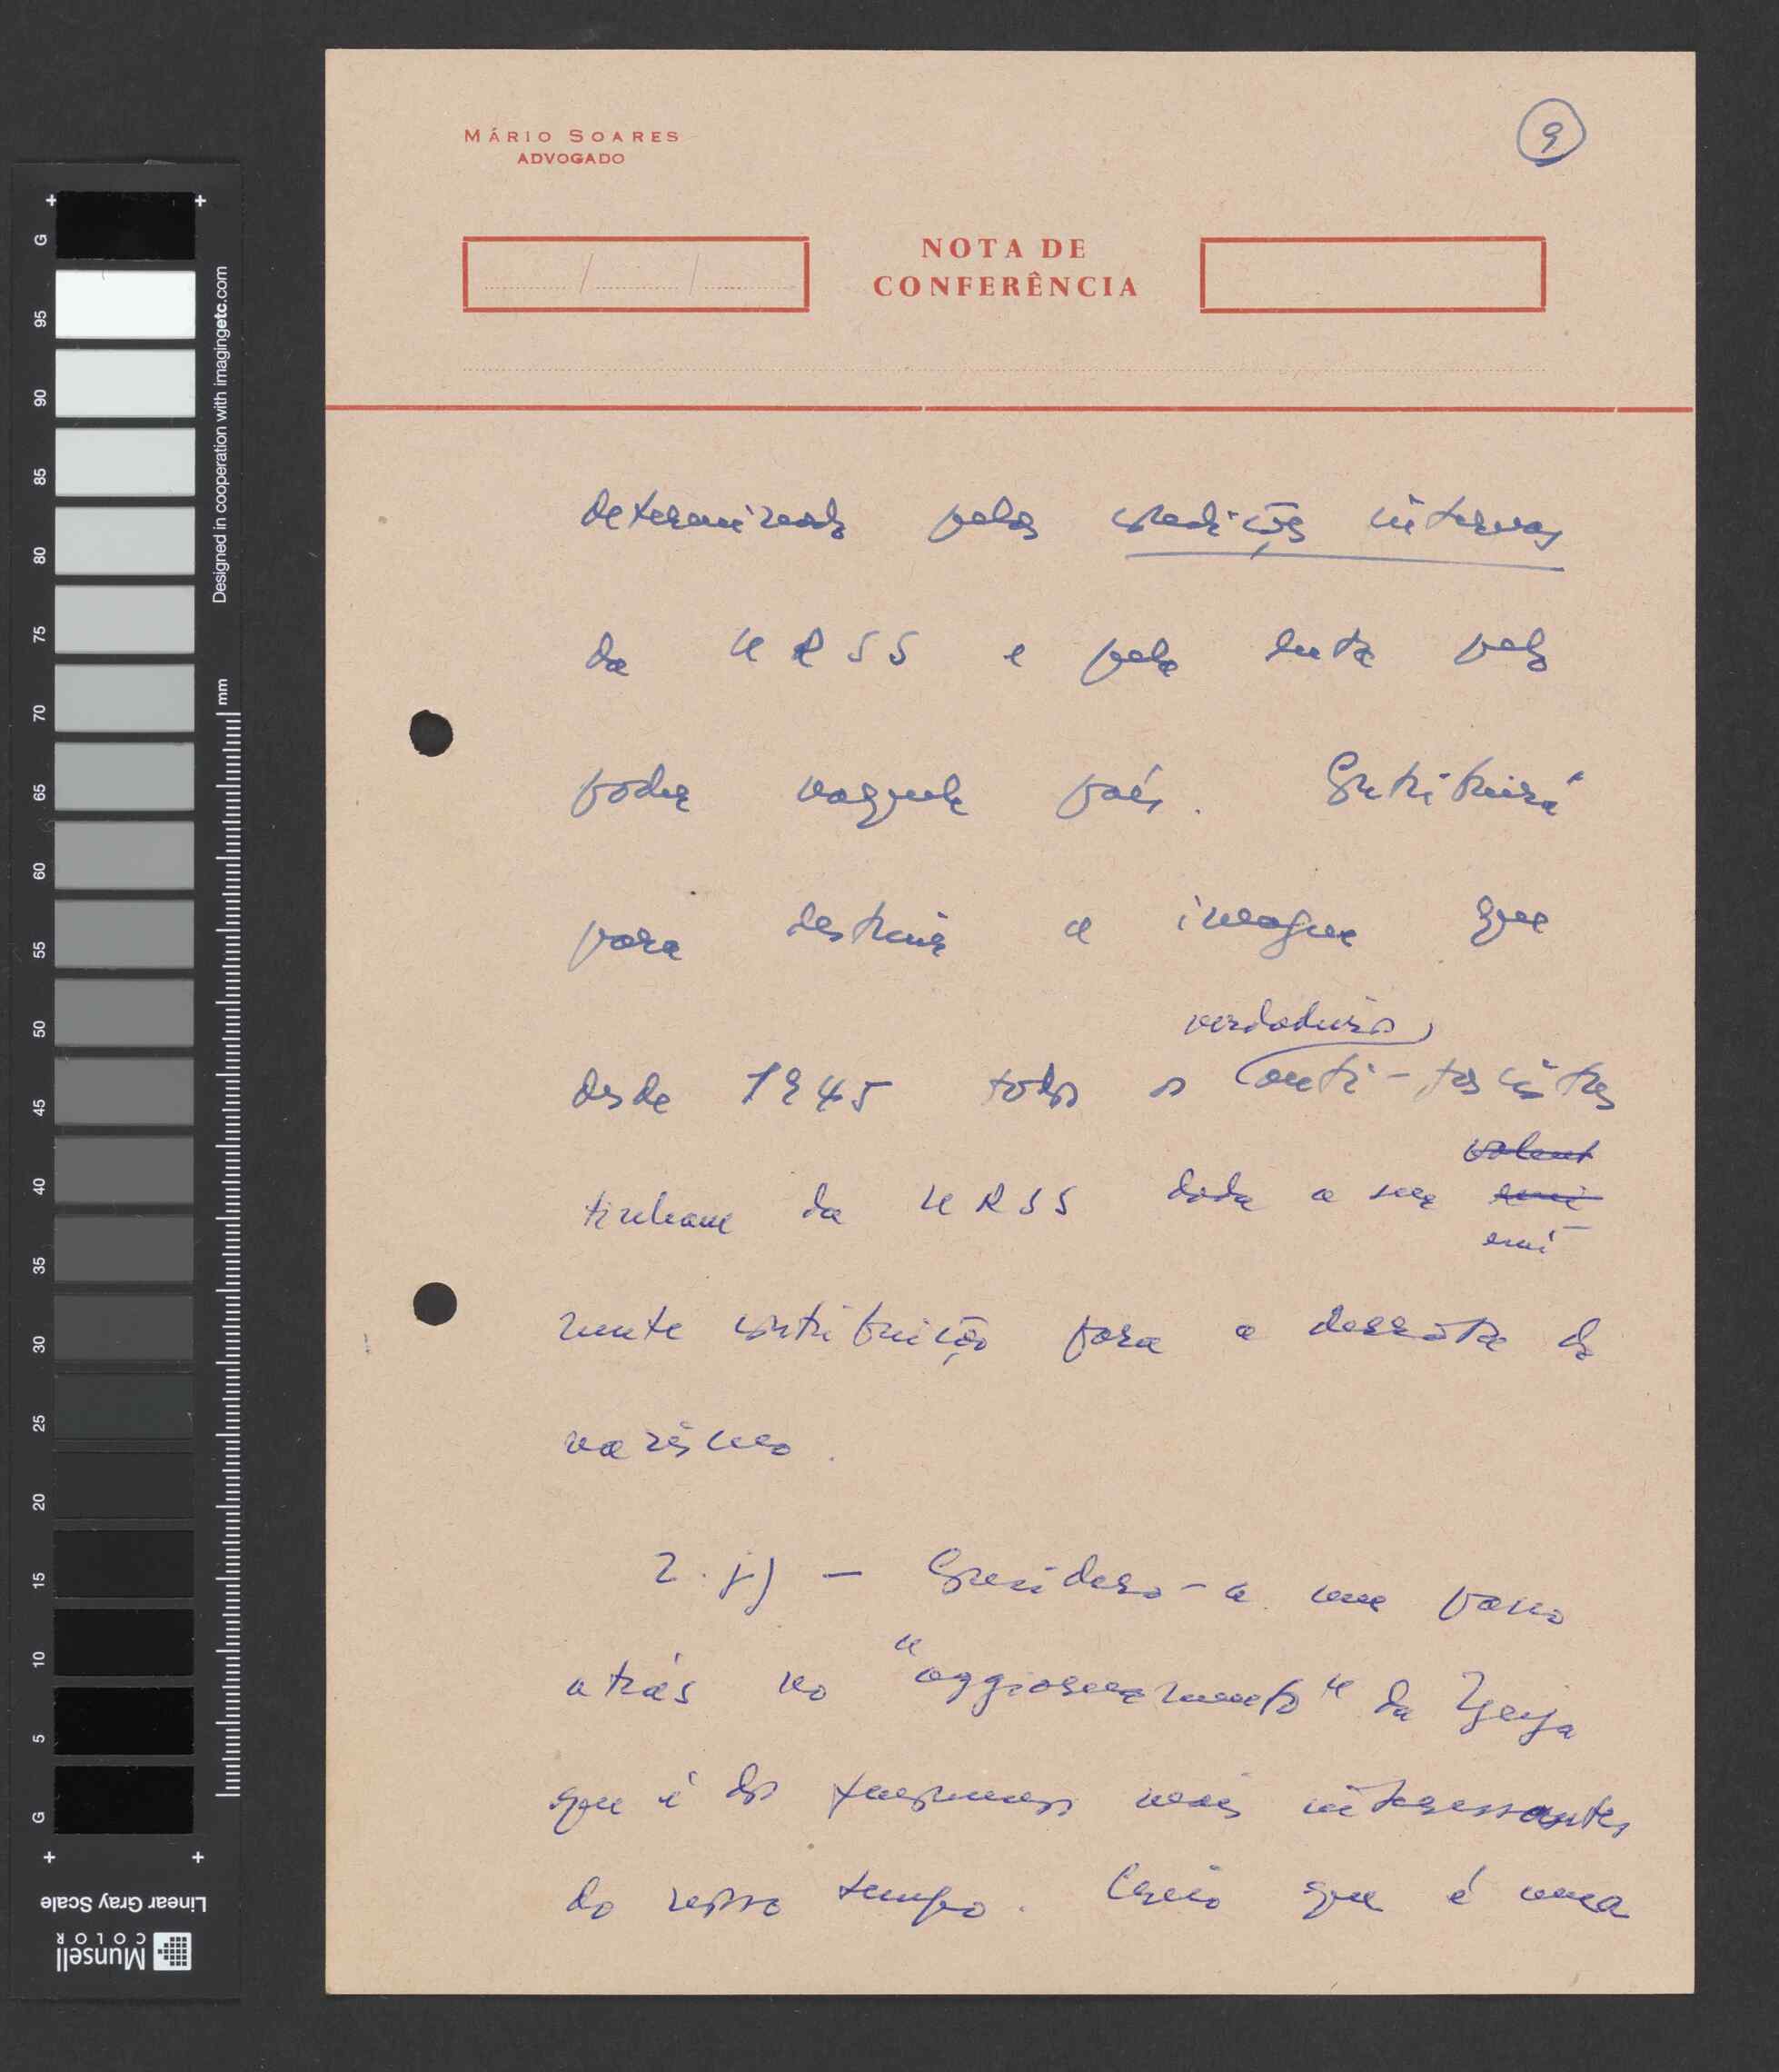 MÁRIO SOARES
ADVOGADO
9
NOTA DE
CONFERÊNCIA
determinada pelas condições internas
da URSS e pela luta pelo
poder naquele país. Contribuirá
para destruir a imagem que
verdadeiros
desde 1945 todos os anti-fascistas
valent
tinham da URSS dada a sua emi
emi-
nente contribuição para a derrota do
nazismo.
2. j) - Considero-a um passo
atrás no "aggiornamento" da Igreja
que é dos fenómenos mais interessantes
do nosso tempo. Creio que é uma
G
95
90
85
80
75
70
65
60
55
50
45
40
35
30
25
20
15
10
5
G
Designed in cooperation with imagingetc.com
mm
Linear Gray Scale
Munsell
COLOR